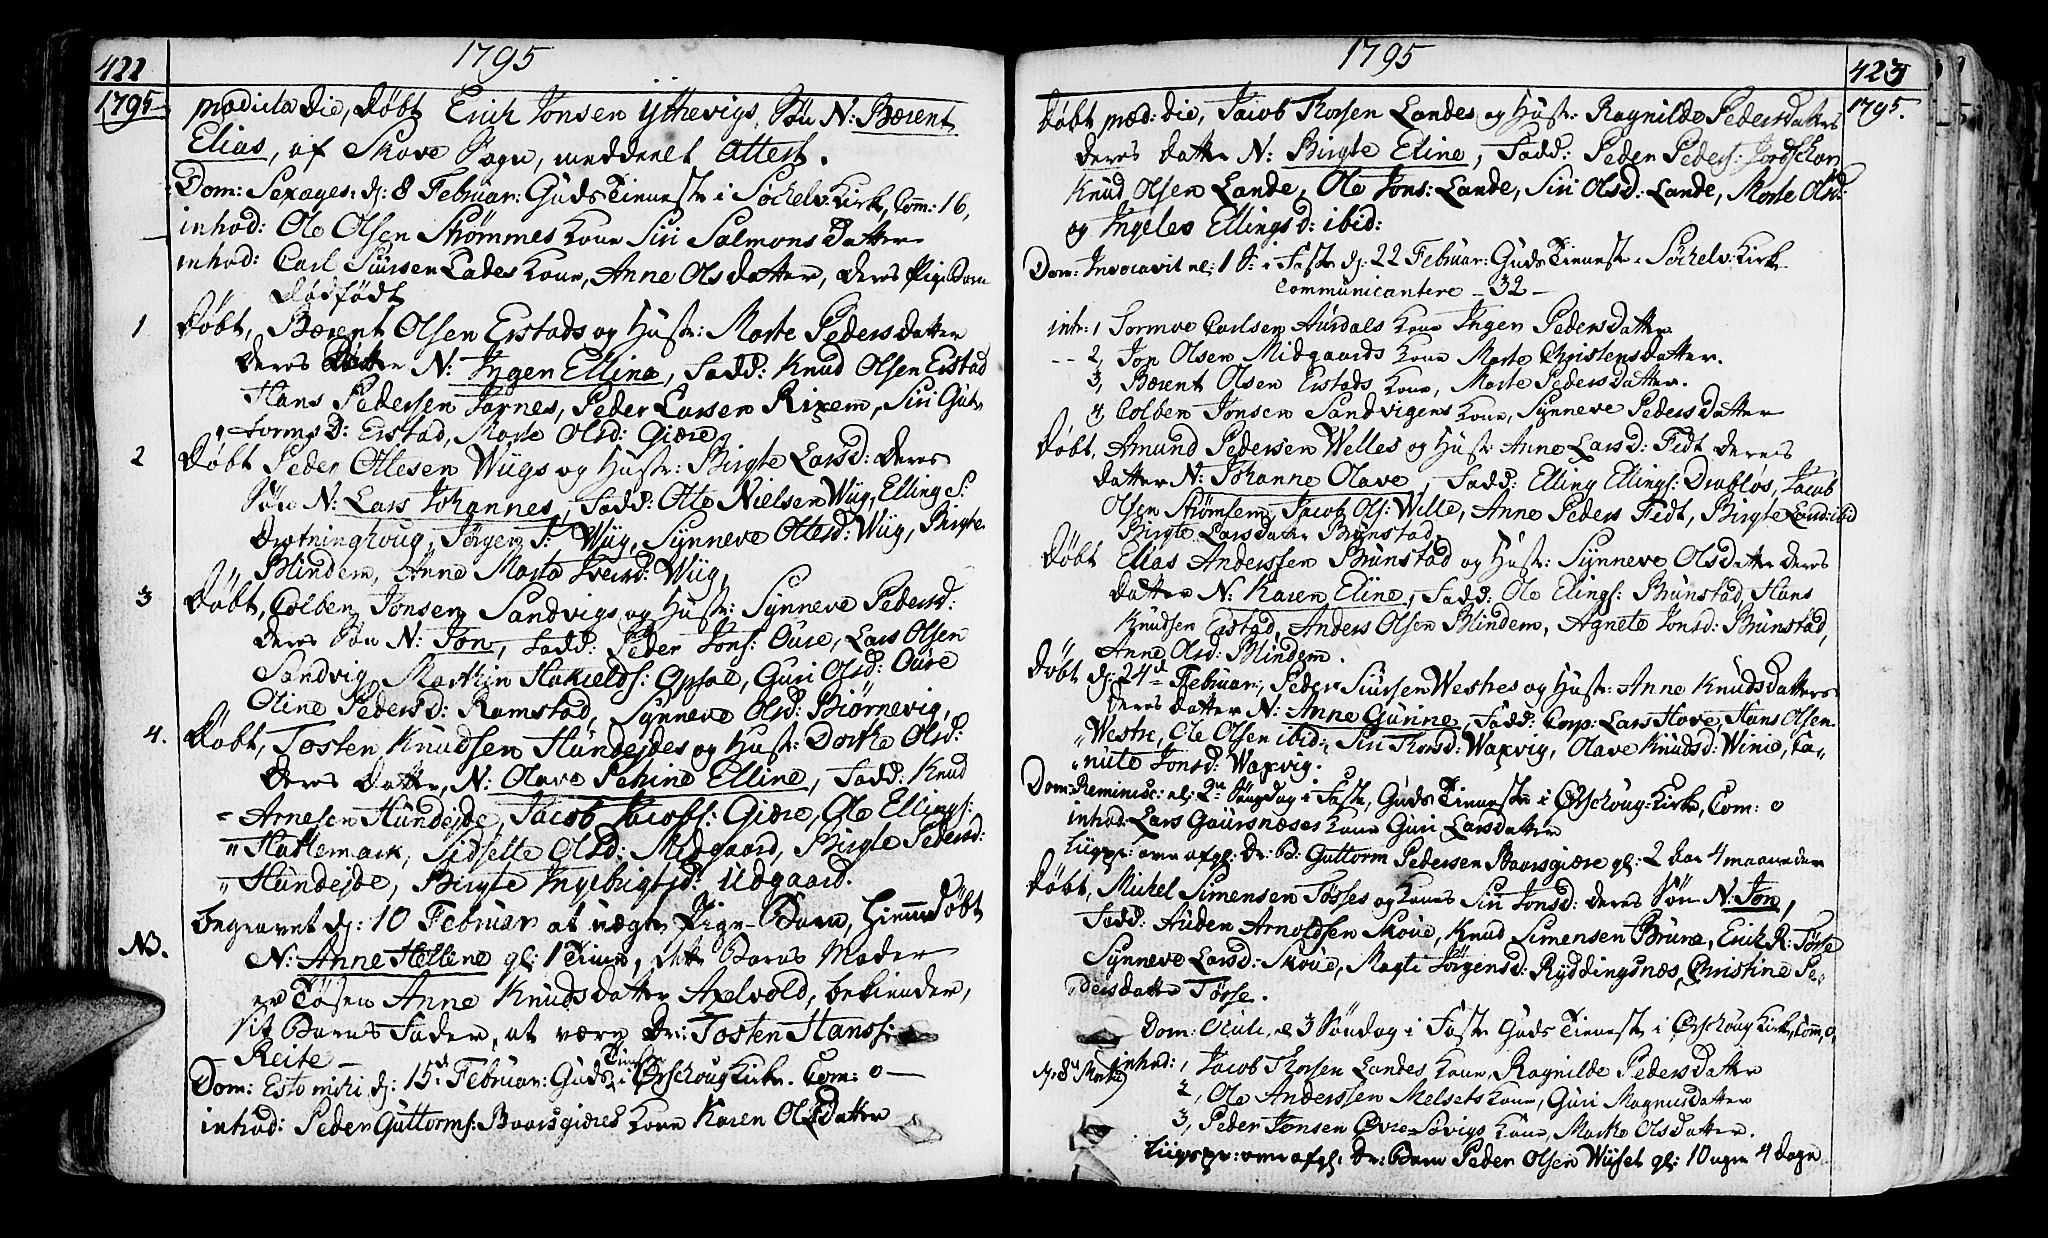 422
1795
1795
prædicta die, døbt Erich Jonsen Ythevigs Søn N: Bærent
Elias, af Skove Sogn, meddeelt Attest.
Dom: Sexages: d: 8 Februar: Guds Tienneste i Søchelv: Kirke, Com: 16,
inhod: Ole Olsen Strømmes Kone Siri Salmons Datter
inhod: Carl Siursen Lades Kone, Anne Olsdatter, deres Pige Barn
dødfødt
1 døbt, Bærent Olsen Erstads og Hustr: Marte Pedersdatter
deres Datter N: Ingen Elline, Fadd: Knud Olsen Erstad
Hans Pedersen Jarnes, Peder Larsen Rixem, Siri Gut-
torms D: Erstad, Marte Olsd: Giære
2 døbt Peder Ottesen Wiigs og Hustr: Birgte Larsd: deres
Søn N: Lars Johannes, Fadd: Otte Nielsen Wiig, Elling S:
Drotninghoug, Jørgen S: Wiig, Synneve Ottesd: Wiig, Birgte
Blindem, Anne Marta Iversd: Wiig,
3 døbt, Colben Jonsen Sandvigs og Hustr: Synneve Pedersd:
deres Søn N: Jon, Fadd: Peder Jons: Oure, Lars Olsen
Sandvig, Marthin Hakields: Opsal, Guri Olsd: Oure
Oline Pedersd: Ramstad, Synneve Olsd: Biørnevig,
4. døbt, Tosten Knudsen Hundejdes og Hustr: Dorthe Olsd:
deres Datter, N: Olave Pehine Elline, Fadd: Knud
Arnesen Hundejde, Jacob Jacobs: Giære, Ole Ellings:
Hattlemark, Sidselle Olsd: Midgaard, Birgte Pedersd:
Hundejde, Birgte Ingebrigtsd: Udgaard.
begravet d: 10 Februar et uægte Pige-Barn, hiemmedøbt
NB. N: Anne Helline gl: 1 Time, dette Barns Moder
er Tøsen Anne Knudsdatter Axelvold, bekiender,
sit Barns Fader, at være Dr: Tosten Hanss:
Reite
Dom: Esto mihi d: 15de Februar: Guds Tienest i Ørschoug Kirke. Com: 0
inhod: Peder Guttorms: Baarsgiæres Kone Karen Olsdatter
1795
423
1795.
døbt præd: die, Jacob Thorsen Landes og Hustr: Ragnilde Pedersdatters
deres datter N: Birgte Eline, Fadd: Peder Peders:
Knud Olsen Lande, Ole Jons: Lande, Siri Olsd: Lande, Marte Olsd:
og Ingeles Ellingsd: ibid:
Dom: Invocavit el: 1 S: i Faste d: 22 Februar: Guds Tienest i Søchelv: Kirke
Communicantere 32
intr: 1 Tormoe Carlsen Aurdals Kone Ingen Pedersdatter
2, Jon Olsen Midgaards Kone Marte Christensdatter.
3, Bærent Olsen Erstads Kone, Marte Pedersdatter.
4, Colben Jonsen Sandvigens Kone, Synneve Pedersdatter
døbt, Amund Pedersen Welles og Hustr: Anne Larsd: Fedt deres
datter N: Johanne Olave, Fadd: Elling Ellings: Drabløs, Jacob
Olsen Strømsem, Jacob Ols: Welle, Anne Peders Fedt, Birgte ibid
Birgte Larsdatter Brunstad,
døbt Elias Anderssen Brunstad og Hustr: Synneve Olsdatter deres
datter N: Karen Eline, Fadd: Ole Elings: Brunstad, Hans
Knudsen Erstad, Anders Olsen Blindem, Agnete Jonsd: Brunstad,
Anne Olsd: Blindem.
døbt d: 24de Februar:, Peder Siursen Westres og Hustr: Anne Knudsdatters
deres datter N: Anne Gurine, Fadd: Corp: Lars Hove, Hans Olsen
Westre, Ole Olsen ibid: Siri Thorsd: Waxvig, Olave Knudsd: Winie, Ca-
nute Jonsd: Waxvig.
Dom: Reminisc: el: 2de Søndag i Faste, Guds Tieneste i Ørschoug: Kirke, Com: 0
inhod: Lars Gaursnæses Kone Guri Larsdatter
Liigpr: over afgl: Dr: B: Guttorm Pedersen Baarsgiære gl: 2 Aar 4 maaneder
døbt, Michel Simensen Tøsses og Kones Siri Jonsd: deres Søn N: Jon,
Fadd: Auden Arnoldsen Skove, Knud Simensen Brune, Erich R: Tøsse
Synneve Larsd: Skove, Magti Jørgensd: Ryddingsnæs, Christine Pe-
dersdatter Tørse.
Dom: Oculi, el 3 Søndag i Faste Guds Tieneste i Ørschoug Kirke, Com, 0,
d: 8de Martii inhod: 1, Jacob Thorsen Landes Kone, Ragnilde Pedersdatter
2, Ole Anderssen Melsets Kone, Guri Magnusdatter
3, Peder Jonsen Øvre Søvigs Kone, Marthe Olsdatter.
Liigpr: over afgl: Dr: Barn Peder Olsen Wiiset gl: 10 uger 4 Dage